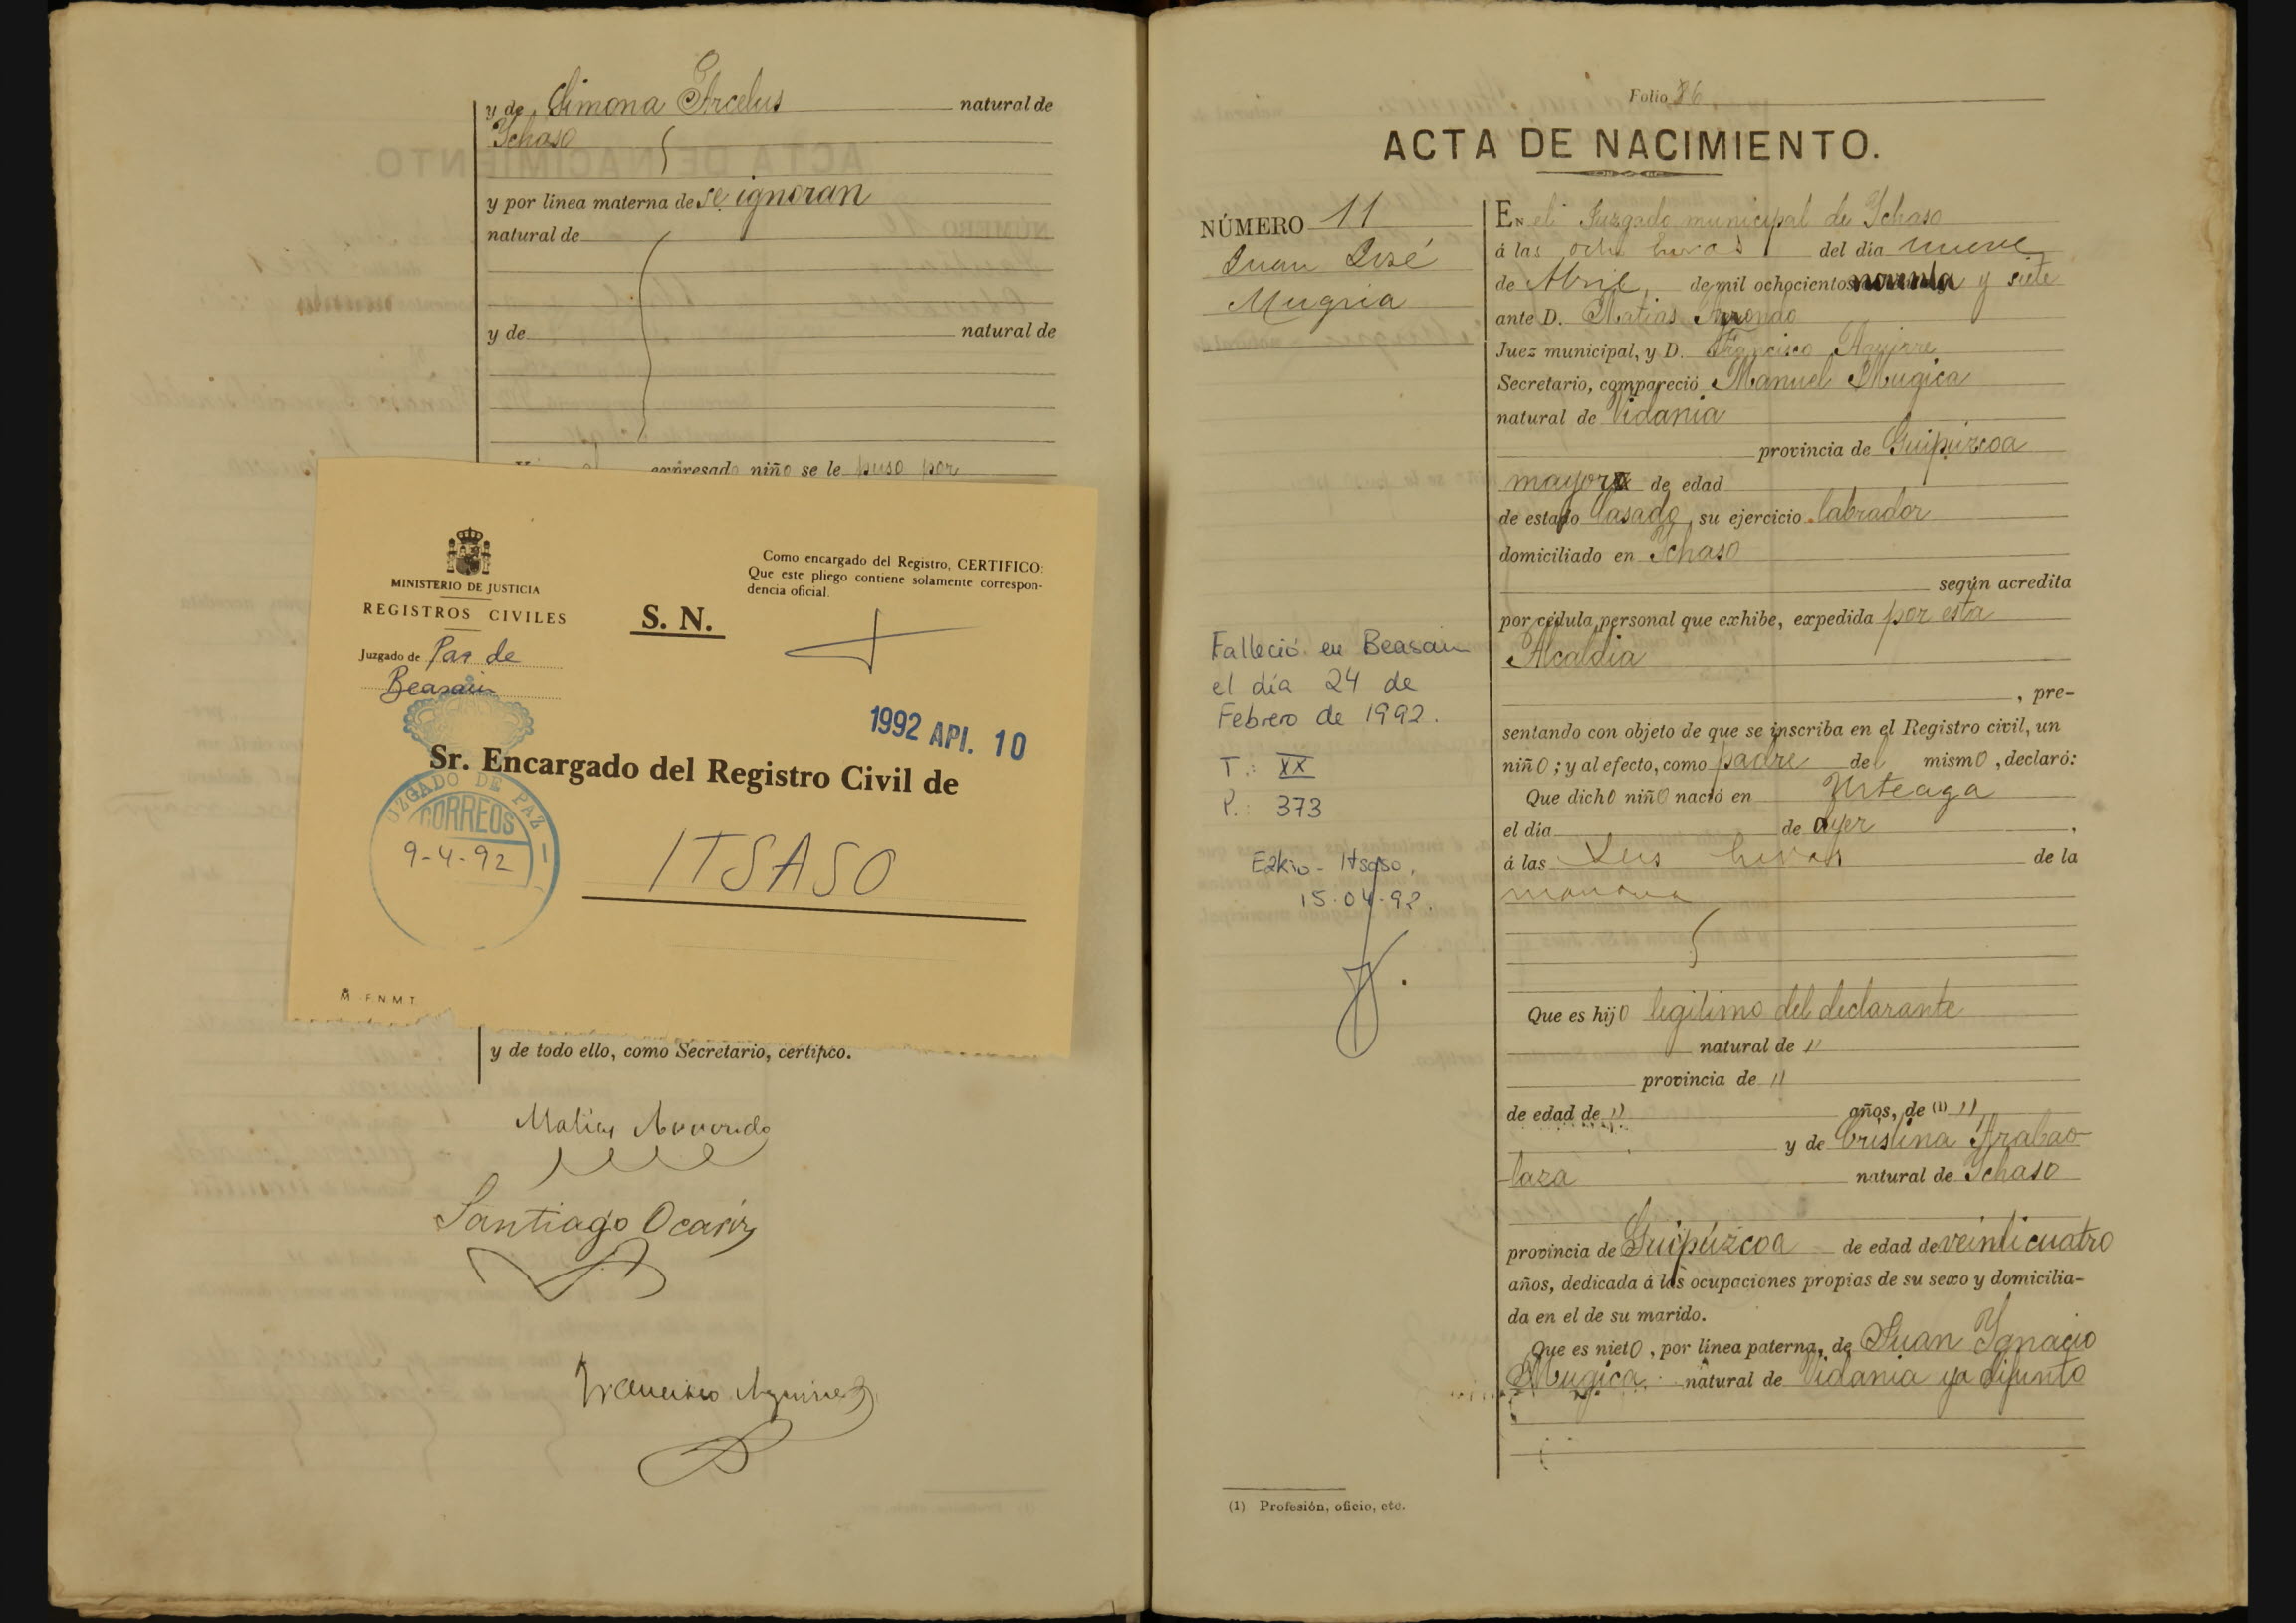 y de Simona Arcelus natural de
Ychaso
y por línea materna de se ignoran
natural de
y de natural de
expresado niño se le puso por
MINISTERIO DE JUSTICIA
REGISTROS CIVILES
Juzgado de Paz de
Beasain
S. N.
Como encargado del Registro, CERTIFICO:
Que este pliego contiene solamente correspon-
dencia oficial.
1992 API. 10
Sr. Encargado del Registro Civil de
JUZGADO DE PAZ
CORREOS
9-4-92
ITSASO
F.N.M.T.
y de todo ello, como Secretario, certifico.
Matias Arrondo
Santiago Ocariz
Francisco Aguirre
Folio 86
ACTA DE NACIMIENTO.
NÚMERO 11
Juan José
Mugica
Falleció en Beasain
el día 24 de
Febrero de 1992.
T.: XX
P.: 373
Ezkio-Itsaso,
15.04.92.
En el Juzgado municipal de Ychaso
á las ocho horas del día nueve
de Abril de mil ochocientos noventa y siete
ante D. Matias Arrondo
Juez municipal, y D. Francisco Aguirre
Secretario, compareció Manuel Mugica
natural de Vidania
provincia de Guipúzcoa
mayor de edad
de estado Casado, su ejercicio labrador
domiciliado en Ychaso
según acredita
por cédula personal que exhibe, expedida por esta
Alcaldia
, pre-
sentando con objeto de que se inscriba en el Registro civil, un
niño; y al efecto, como padre del mismo, declaró:
Que dicho niño nació en Urteaga
el día de ayer,
á las seis horas de la
mañana
Que es hijo legitimo del declarante
natural de "
provincia de "
de edad de " años, de (1) "
y de Cristina Arabao-
laza natural de Ychaso
provincia de Guipúzcoa de edad de veinticuatro
años, dedicada á las ocupaciones propias de su sexo y domicilia-
da en el de su marido.
Que es nieto, por línea paterna, de Juan Ygnacio
Mugica natural de Vidania ya difunto
(1) Profesión, oficio, etc.